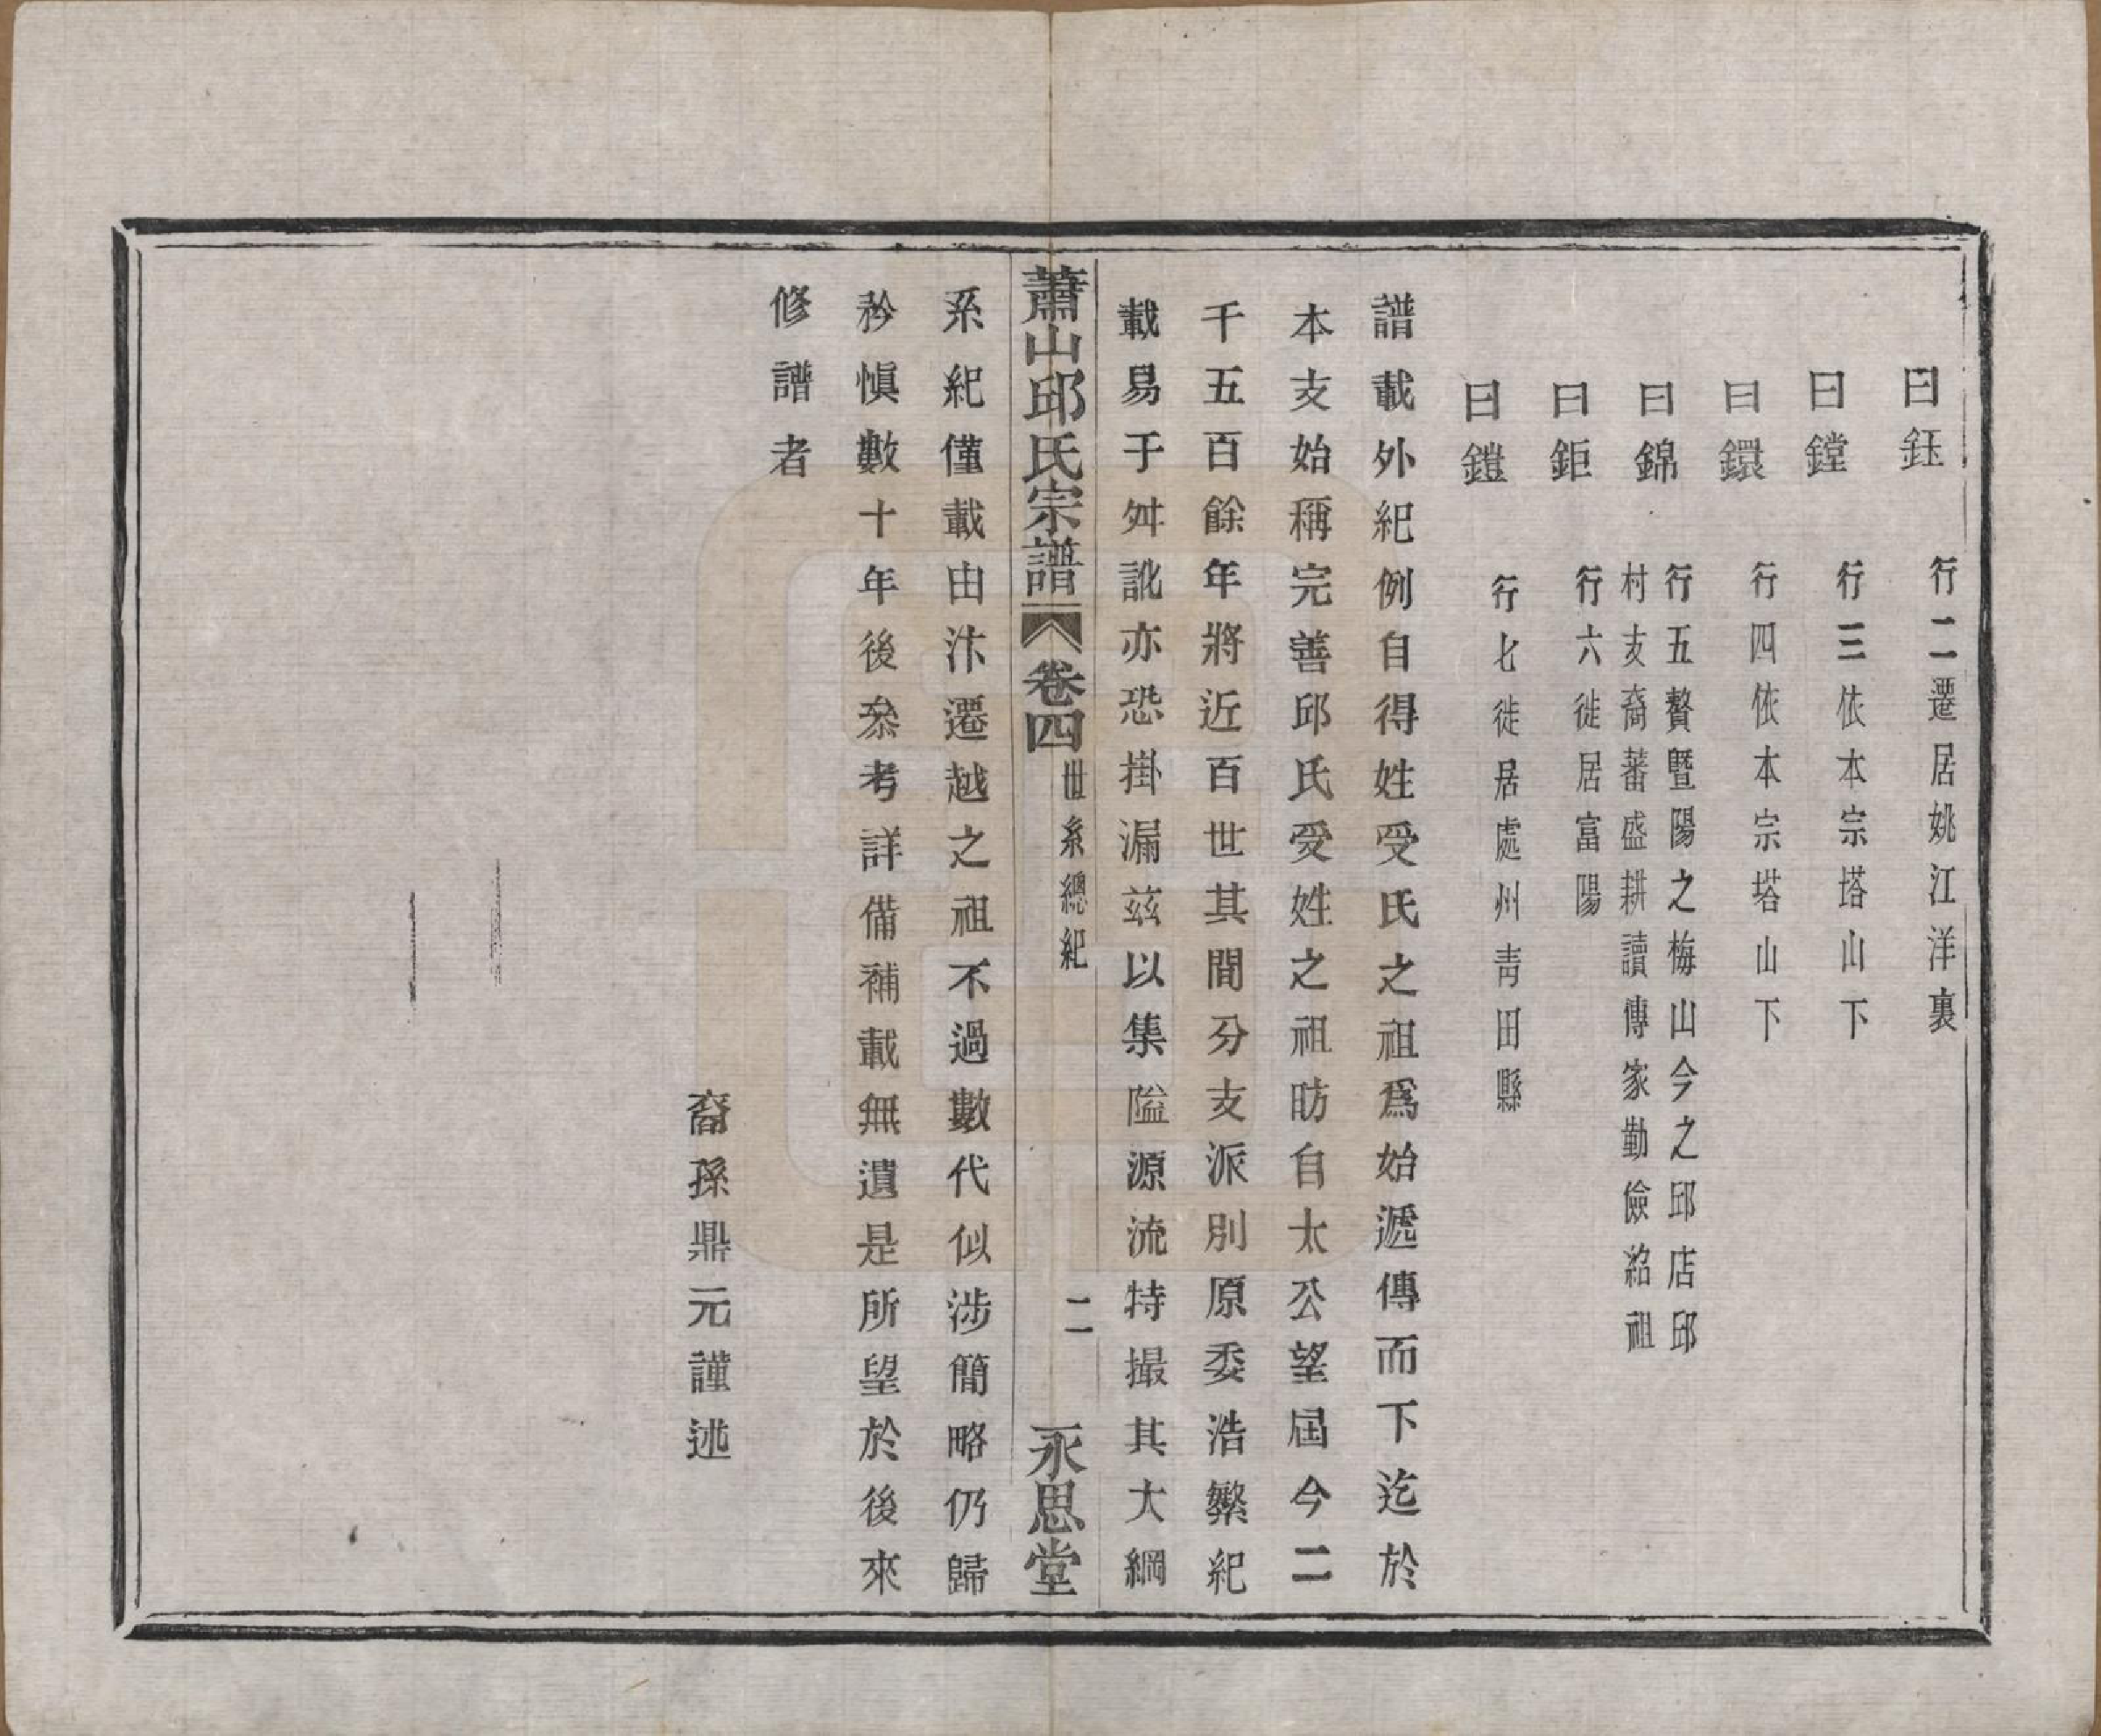 曰鈺　行二遷居姚江洋裏
曰鏜　行三依本宗塔山下
曰鐶　行四依本宗塔山下
曰錦　行五贅暨陽之梅山今之邱店邱
村支裔蕃盛耕讀傳家勤儉紹祖
曰鉅　行六徙居富陽
曰鎧　行七徙居處州青田縣
譜載外紀例自得姓受氏之祖爲始遞傳而下迄於
本支始稱完善邱氏受姓之祖昉自太公望屆今二
千五百餘年將近百世其間分支派別原委浩繁紀
載易于舛訛亦恐掛漏玆以集隘源流特撮其大綱
蕭山邱氏宗譜　卷四　世系總紀　二　永思堂
系紀僅載由汴遷越之祖不過數代似涉簡略仍歸
矜愼數十年後叅考詳備補載無遺是所望於後來
修譜者
裔孫鼎元謹述